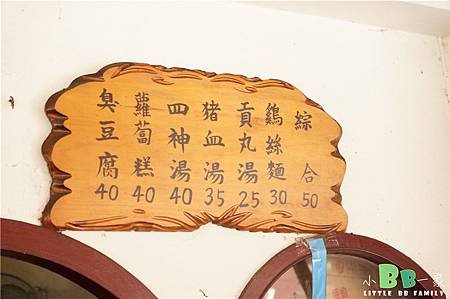 臭豆腐 40
蘿蔔糕 40
四神湯 40
豬血湯 35
貢丸湯 25
鷄絲麵 30
綜合 50
小BB一家
LITTLE BB FAMILY